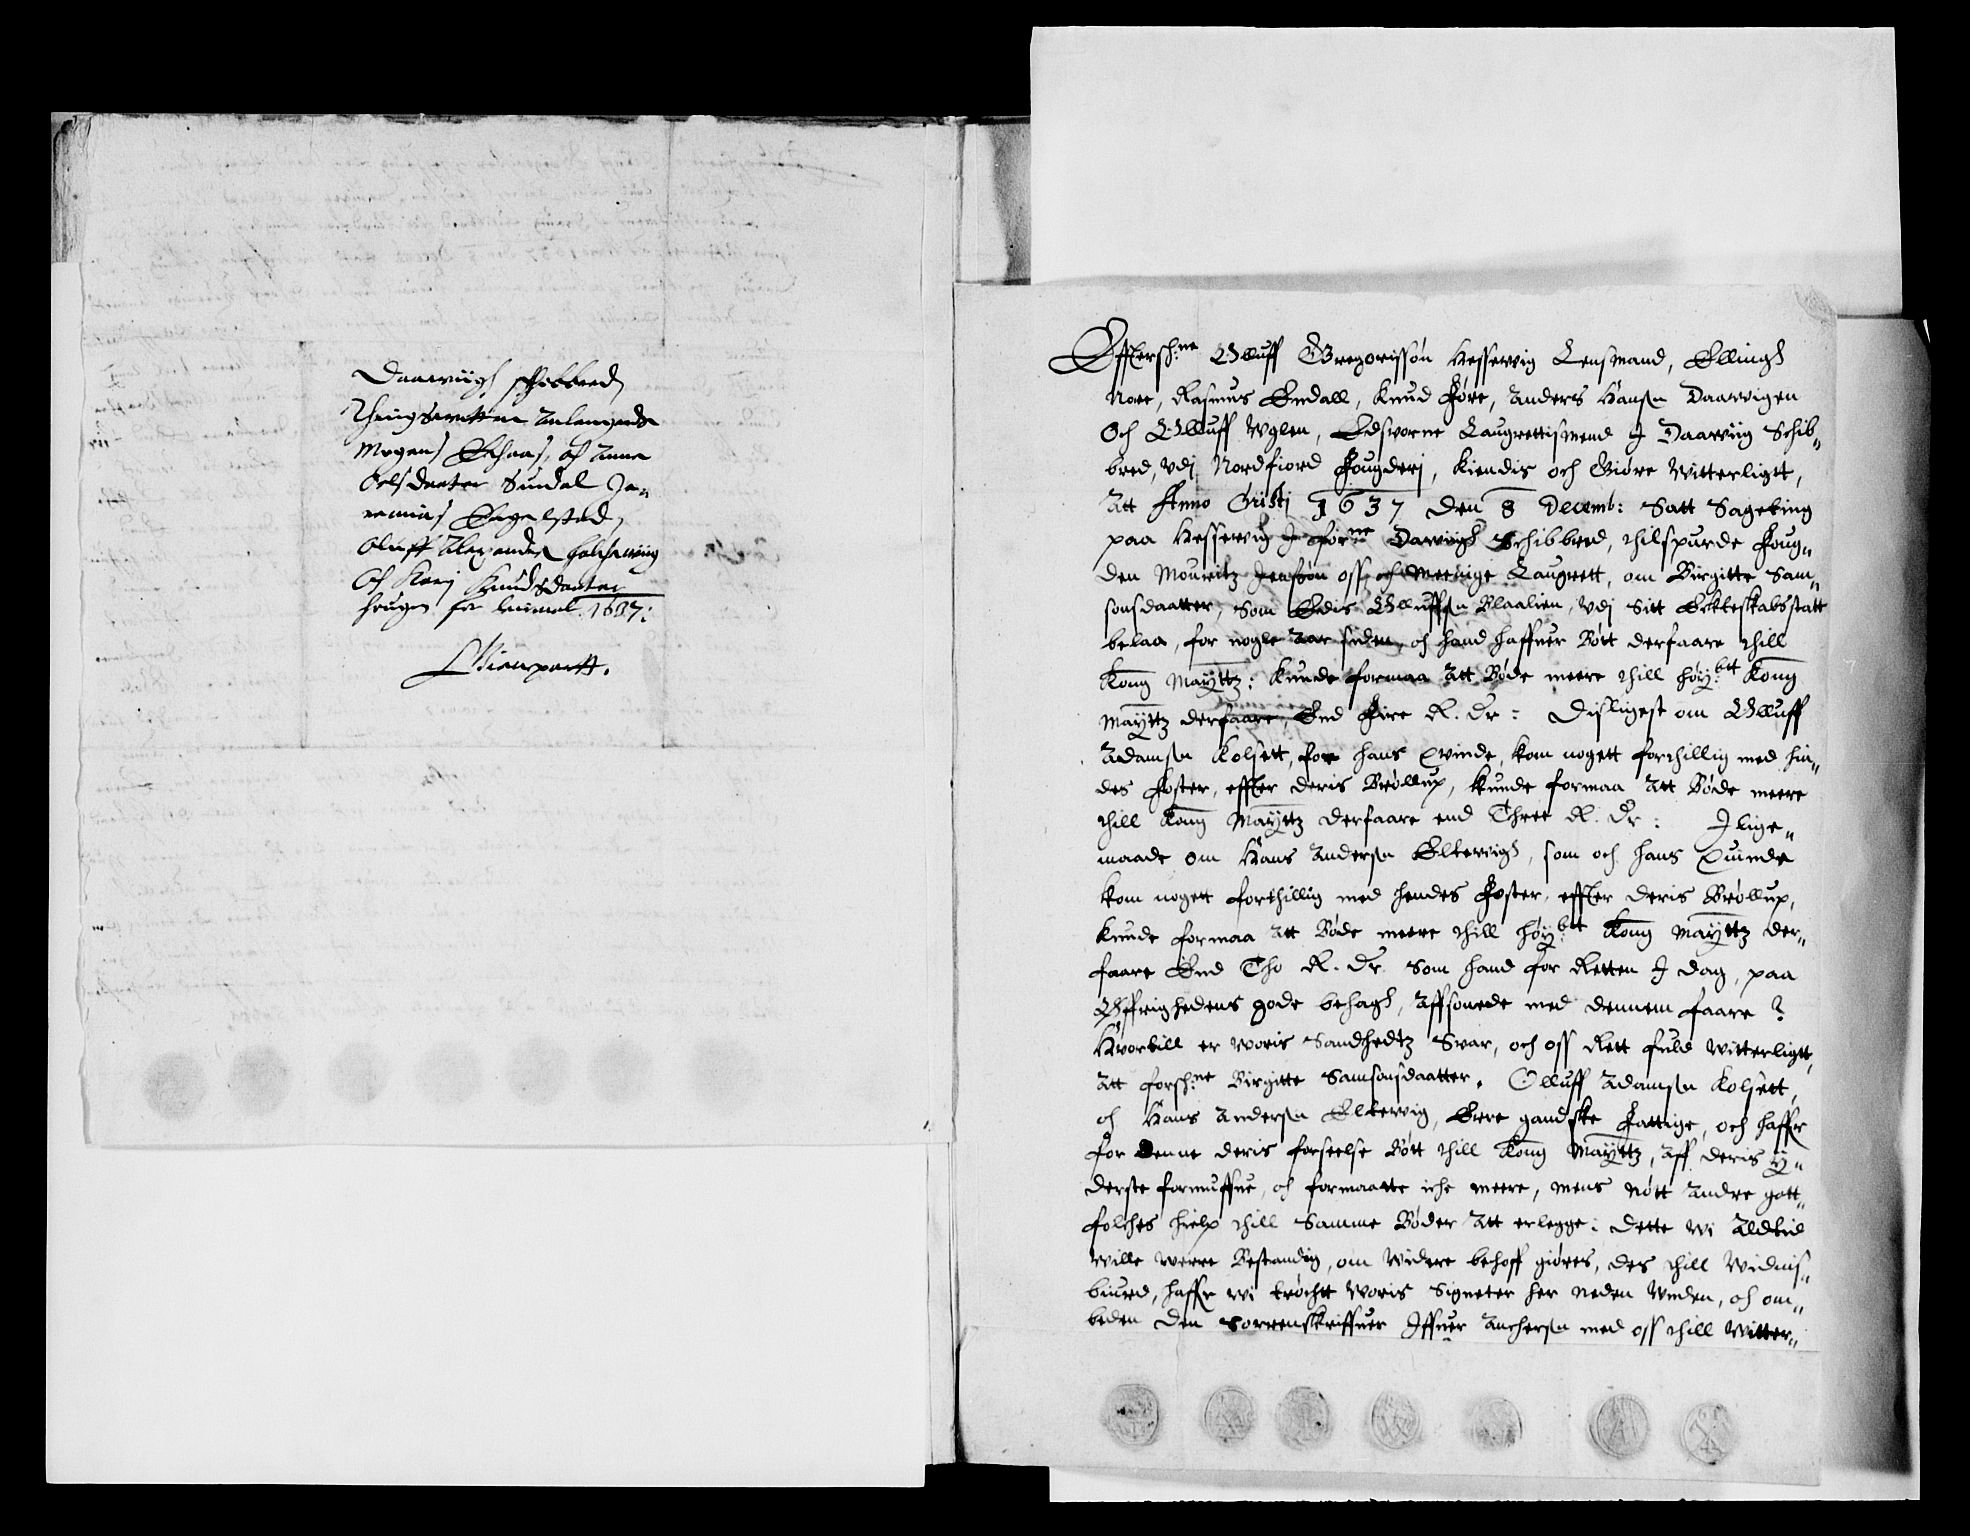 Daawiigh schibbred
Thingswittne anlangende
Mogens Schaas, och Anna
Oelsdaater Sundal Je„
remias Engelstad,
Oluff Alexander
och Karj Knudsdaater
haugen for leiermaal 1637:
Effterschne Olluff Gregorissøn Hessewig Lensmand, Ellingh
Nore, Rasmus Endall, Knud Føre, Anders Hansn Daawigen
Och Olluff Wglen, Edsworne Laugrettismend J Daawiig Schib„
bred, vdj Nordfiord Fougderj, Kiendis och Giøre Witterligtt,
Att Anno Cristj 1637 den 8 Decemb: Satt Sageting
paa Hessewig J forne Dawigh Schibbred, thilspurde Foug„
den Mouritz Jensøn oss och Meenige Laugrett, om Birgitte Sam„
sonsdaatter, som Edis Olluffsn Blaalien, vdj sitt Ecteskabsstatt
belaa, for nogle Aar siden, och hand haffuer Bøtt derfaare thill
Kong Mayttz: Kunde formaa Att Bøde meere thill høybtt: Kong
Mayttz derfaare, End Fire R. Dr: Disligest om Olluff
Adamsn Kolsett, for hans Qvinde, kom nogett forthillig med hin„
des Foster, effter deris Brøllup, Kunde formaa Att Bøde meere
thill Kong Mayttz derfaare end Three R. Dr: J lige„
maade om Hans Andersn Eltewigh, som och hans Quinde
kom nogett forthillig med hendes Foster, effter deris Brøllup,
Kunde formaa Att Bøde meere thill høybtt: Kong Mayttz der„
faare End Tho R. Dr. Som hand for Retten J dag, paa
Øffrighedens gode behagh, Affsonede med dennem faare?
Hvortill er woris Sandhedtz Svar, och oss Rett fuld witterligtt,
Att forschne: Birgitte Samsonsdaatter, Olluff Adamsn Kolsett,
och Hans Andersn Eltewig, Ere gandske Fattige, och haffr
for denne deris forseelse Bøtt thill Kong Mayttz, Aff deris ÿ„
derste formuffue, och formaatte iche meere, mens nøtt andre gott„
folches hielp thill Samme Bøder Att erlegge: dette wi Aldtid
wille werre Bestandig, om widere behoff giøres, des thill Widnis„
biurd, haffr wi trøchtt woris Signeter her neden vnden, och om„
beden den Sorrenskriffuer Iffuer Anchersn med oss thill Witter„